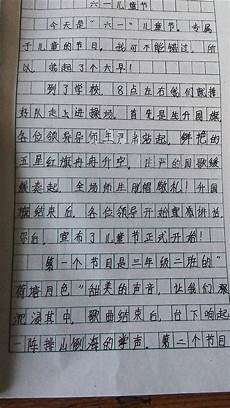 六一儿童节
今天是“六一”儿童节。专属
于儿童的节日，我可不能错过，所
以，我起了个大早！
到了学校，8点左右我们就排
好队走上进操场。首先是生升国旗
各位领导师生严肃站起，鲜艳的
五星红旗冉冉升空，庄严的国歌缓
缓奏起，全场师生肃唱敬礼！升国
旗结束后，各位领导开始宣卷讲话
完后，宣布了儿童节正式开始！
第一个节目是三年级二班的“
荷塘月色”甜美的声音，让我们深
沉浸其中，歌曲结束后，台下响起
一阵排山倒海的掌声，第二个节目